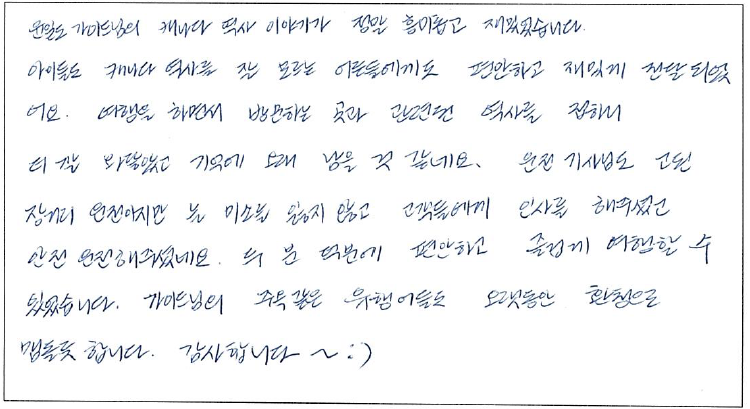 윤일도 가이드님의 캐나다 역사 이야기가 정말 흥미롭고 재밌었습니다.
아이들도 캐나다 역사를 잘 모르는 어른들에게도 편안하고 재밌게 전달되었
어요. 여행을 하면서 방문하는 곳과 관련된 역사를 접하니
더 잘 와닿았고 기억에 오래 남을 것 같네요. 운전 기사님도 고된
장거리 운전이지만 늘 미소를 잃지 않고 고객들에게 인사를 해주셨고
안전 운전해주셨네요. 두 분 덕분에 편안하고 즐겁게 여행할 수
있었습니다. 가이드님의 주옥 같은 유행어들도 오랫동안 환청으로
맴돌듯 합니다. 감사합니다 ~ :)